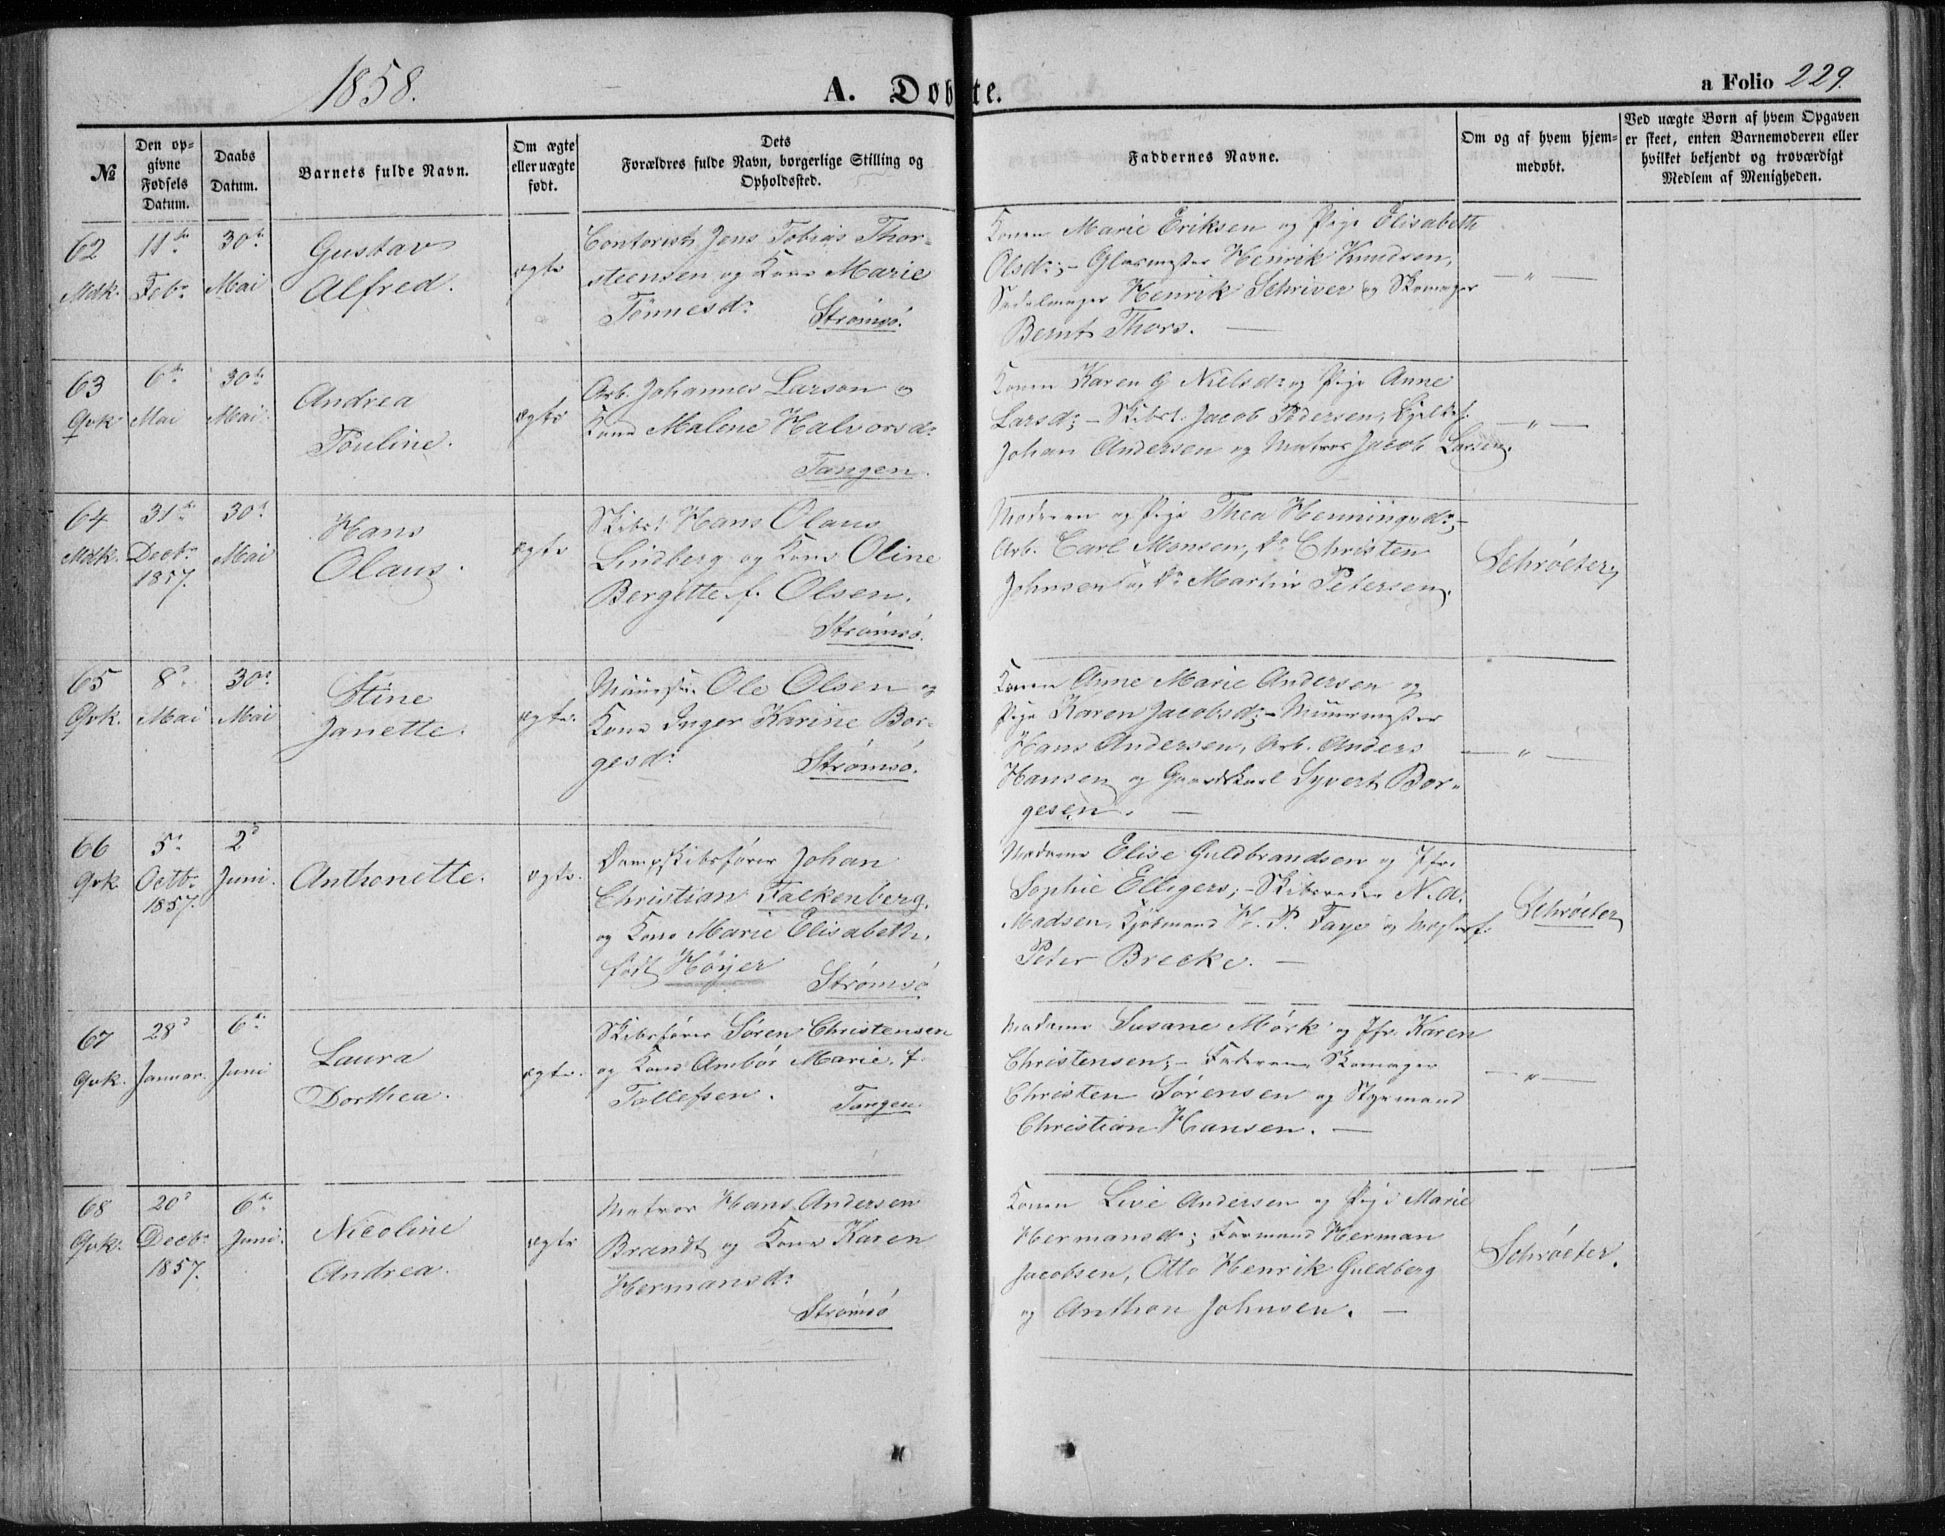 1858.
A. Døbte.
a Folio 229.
№
Den op-
givne
Fødsels
Datum.
Daabs
Datum.
Barnets fulde Navn.
Om ægte
eller uægte
født.
Dets
Forældres fulde Navn, borgerlige Stilling og
Opholdssted.
Faddernes Navne.
Om og af hvem hjem-
medøbt.
Ved uægte Børn af hvem Opgaven
er skeet, enten Barnemoderen eller
hvilket bekjendt og troværdigt
Medlem af Menigheden.
62
Mdk.
11te
Febr.
30te
Mai
Gustav
Alfred.
ægte
Contorist Jens Tobias Thor-
steensen og Kone Marie
Tönnesdr.
Strømsö.
Konen Marie Eriksen og Pige Elisabeth
Olsdr; - Glasmester Henrik Knudsen,
Sadelmager Henrik Schriver og Skomager
Bernt Thors. —
— " —
63
Qvk
6te
Mai
30te
Mai
Andrea
Pouline.
ægte
Arb. Johannes Larson og
Kone Malene Halvorsdr.
Tangen.
Konen Karen G Nielsdr og Pige Anne
Larsdr; - Skibst. Jacob Pedersen,
Johan Andersen og Matros Jacob Larsen.
— " —
64
Mdk.
31te
Decbr
1857.
30te
Mai
Hans
Olaus.
ægte
Skibst. Hans Olaus
Lindberg og Kone Oline
Bergette f. Olsen.
Strømsö.
Moderen og Pige Thea Henningsdr; -
Arb. Carl Monsen, Do Christen
Johnsen og Do Martin Petersen.
Schröeter
65
Qvk.
8de
Mai
30te
Mai
Stine
Janette.
ægte.
Muurmstr. Ole Olsen og
Kone Inger Karine Bor-
gesdr.
Strømsö.
Konen Anne Marie Andersen og
Pige Karen Jacobsdr; - Muurmester
Hans Andersen, Arb. Anders
Hansen og Gaardskarl Syvert Bor-
gesen. —
— " —
66
Qvk
5te
Octbr
1857.
2d
Juni.
Anthonette.
ægte.
Dampskibsfører Johan
Christian Falkenberg,
og Kone Marie Elisabeth,
født Höyer
Strømsö
Madame Elise Guldbrandsen og Jfr.
Sophie Elligers; - Skibsreder N. A.
Madsen, Kjøbmand H. P. Faye og
Peter Brecke. —
Schröeter
67
Qvk.
28d
Januar.
6te
Juni
Laura
Dorthea.
ægte.
Skibsfører Sören Christensen
og Kone Ambör Marie, f.
Tollefsen.
Tangen.
Madame Susane Mörk og Jfr. Karen
Christensen; - Faderen, Skomager
Christen Sörensen og Styrmand
Christian Hansen. —
— " —
68
Qvk.
20d
Decbr
1857.
6te
Juni.
Nicoline
Andrea.
ægte
Matros Hans Andersen
Brandt og Kone Karen
Hermansdr.
Strømsö
Konen Live Andersen og Pige Marie
Hermansdr; Formand Herman
Jacobsen, Otto Henrik Guldberg
og Anthon Johnsen. —
Schröeter.